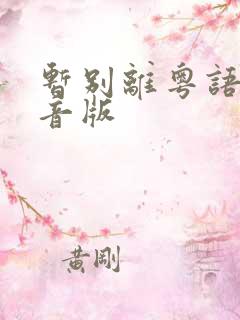 暫別離粵語
音版
黃剛